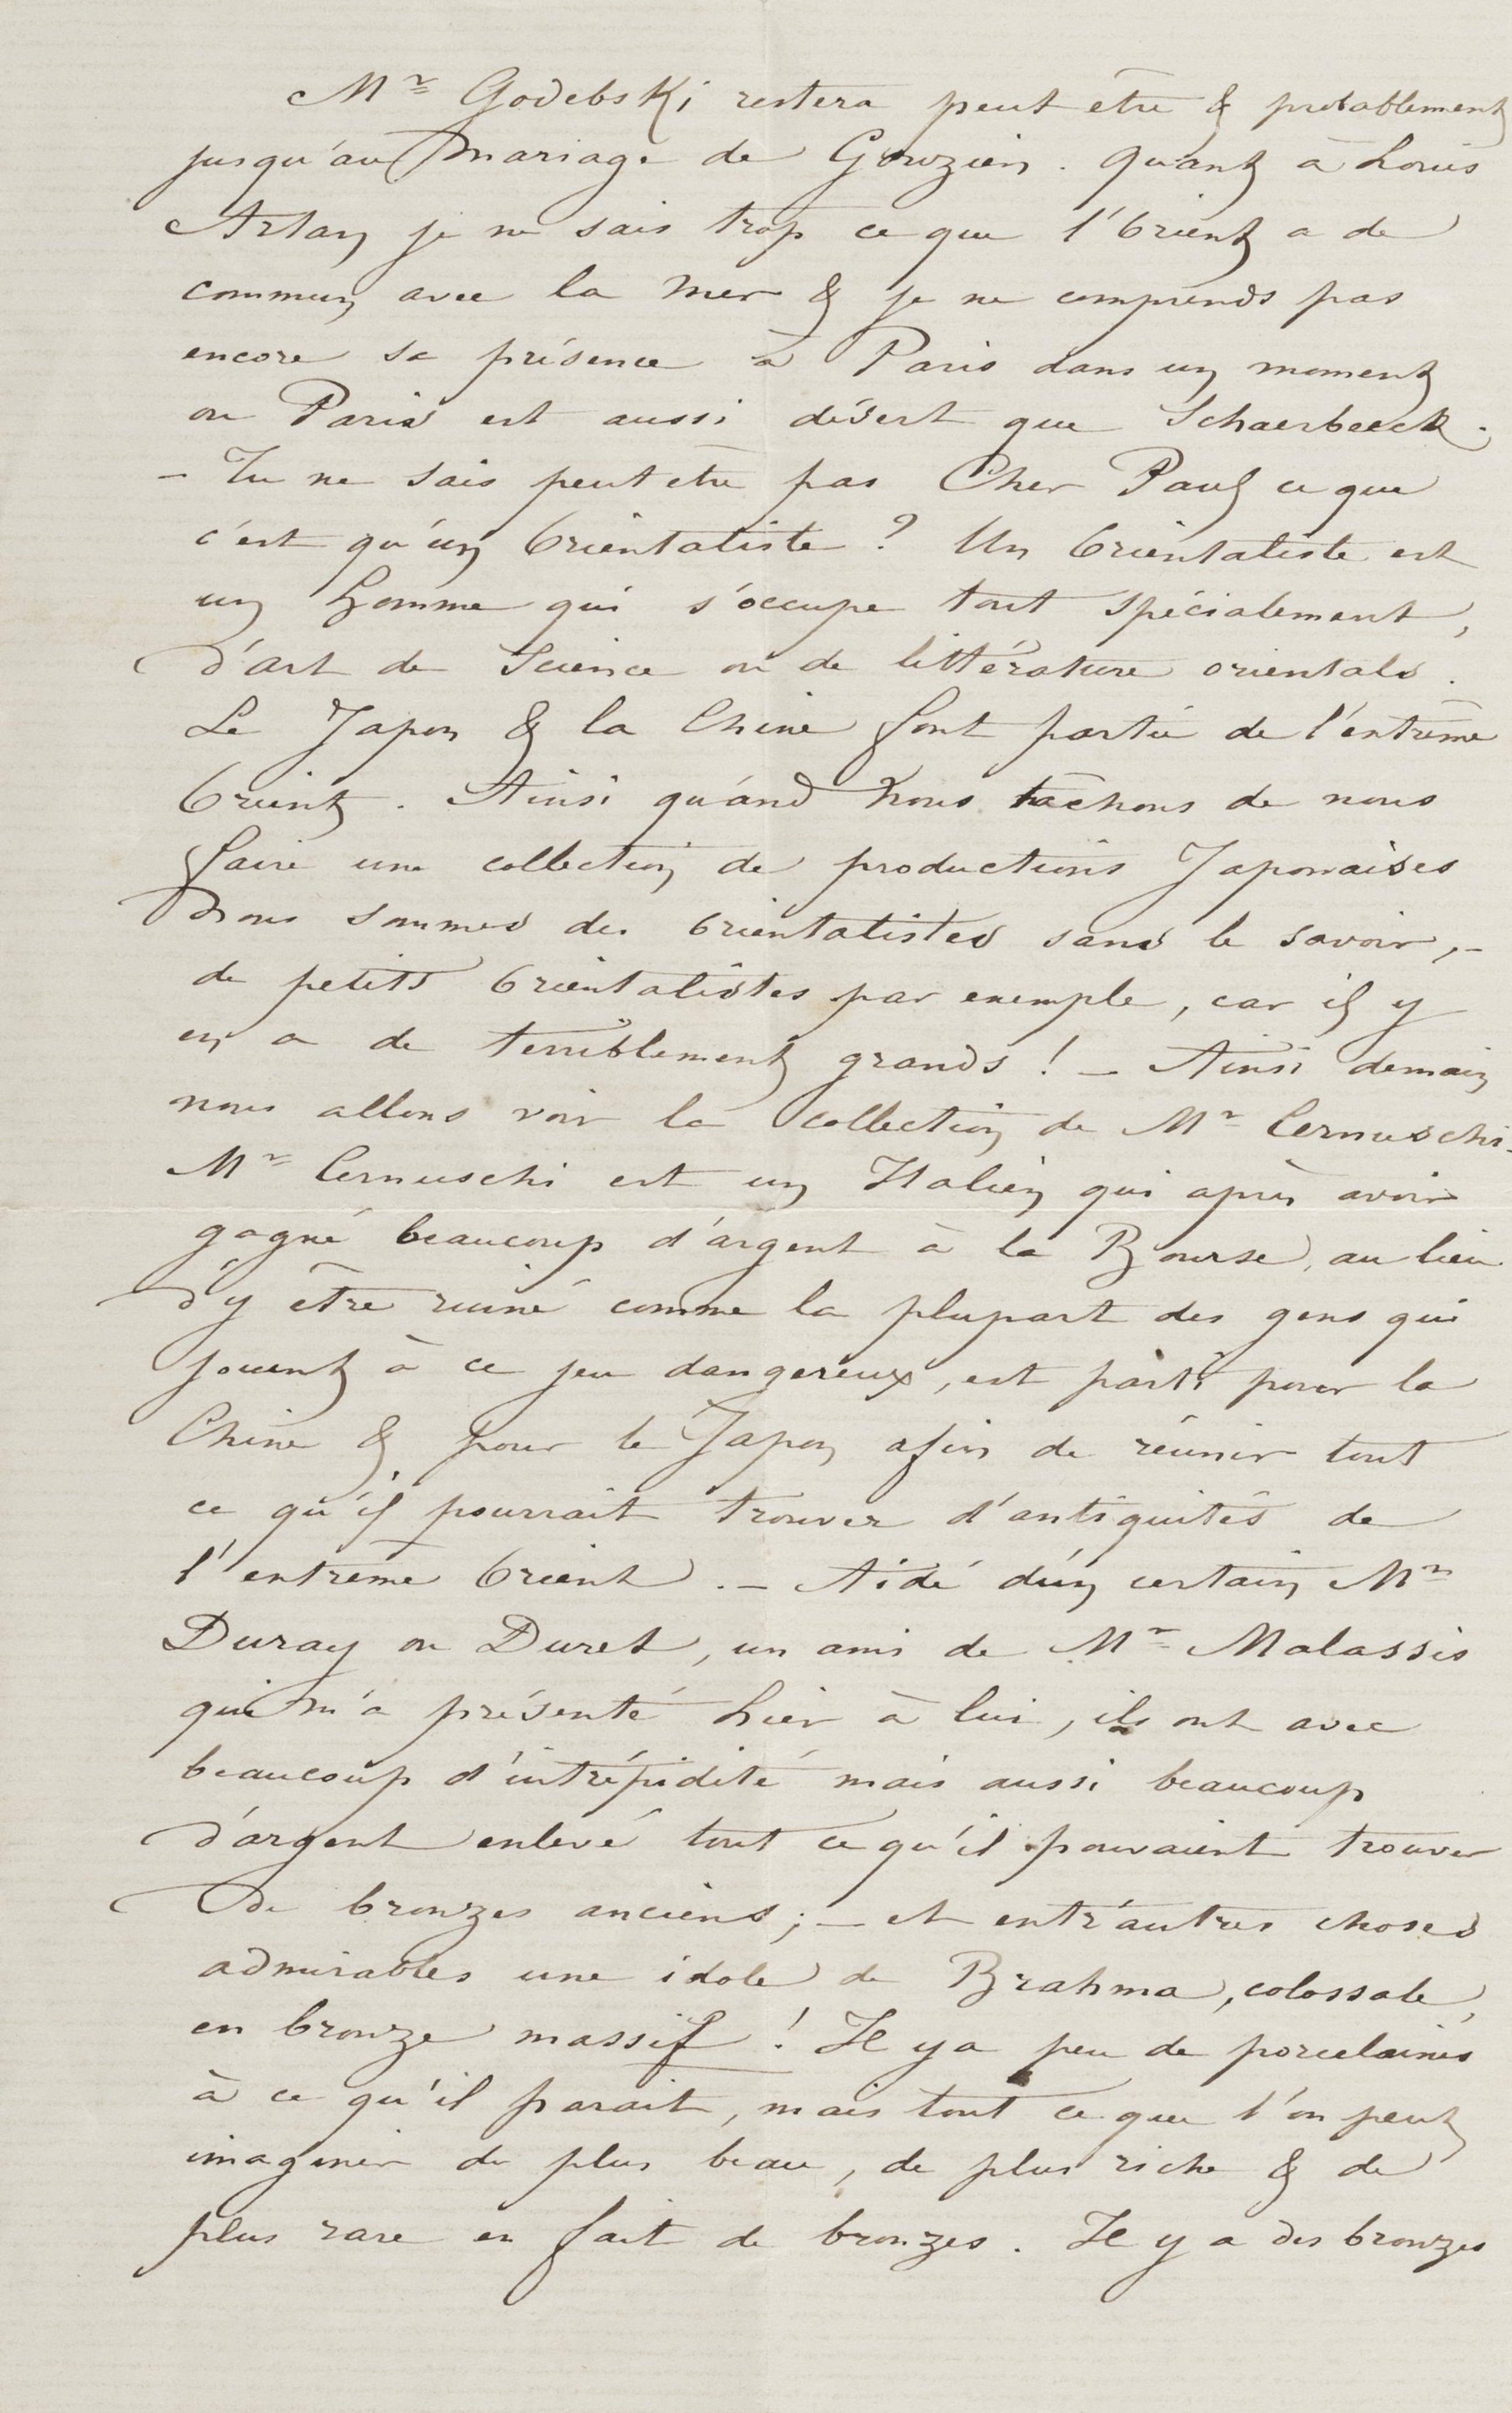 Mr Godebski restera peut être & probablement
jusqu'au mariage de Gouzien. Quant à Louis
Artan je ne sais trop ce que l'Orient a de
commun avec la mer & je ne comprends pas
encore sa présence à Paris dans un moment
ou Paris est aussi désert que Schaerbeeck.
– Tu ne sais peut etre pas Cher Paul ce que
c'est qu'un Orientaliste ? Un Orientaliste est
un homme qui s'occupe tout spécialement,
d'art de Science ou de littérature orientale.
Le Japon & la Chine font partie de l'extrême
Orient. Ainsi quand nous tachons de nous
faire une collection de productions Japonaises
nous sommes des orientalistes sans le savoir, –
de petits Orientalistes par exemple, car il y
en a de terriblement grands ! – Ainsi demain
nous allons voir la collection de Mr Cernuschi.
Mr Cernuschi est un Italien qui après avoir
gagné beaucoup d'argent à la Bourse, au lieu
d'y être ruiné comme la plupart des gens qui
jouent à ce jeu dangereux, est parti pour la
Chine & pour le Japon afin de réunir tout
ce qu'il pourrait trouver d'antiquités de
l'extrême Orient. – Aidé d'un certain Mr
Duray ou Duret, un ami de Mr Malassis
qui m'a présenté hier à lui, ils ont avec
beaucoup d'intrépidité mais aussi beaucoup
d'argent enlevé tout ce qu'il pouvaient trouver
de bronzes anciens; – et entr'autres choses
admirables une idole de Brahma, colossale,
en bronze massif ! Il y a peu de porcelaines
à ce qu'il parait, mais tout ce que l'on peut
imaginer de plus beau, de plus riche & de
plus rare en fait de bronzes. Il y a des bronzes